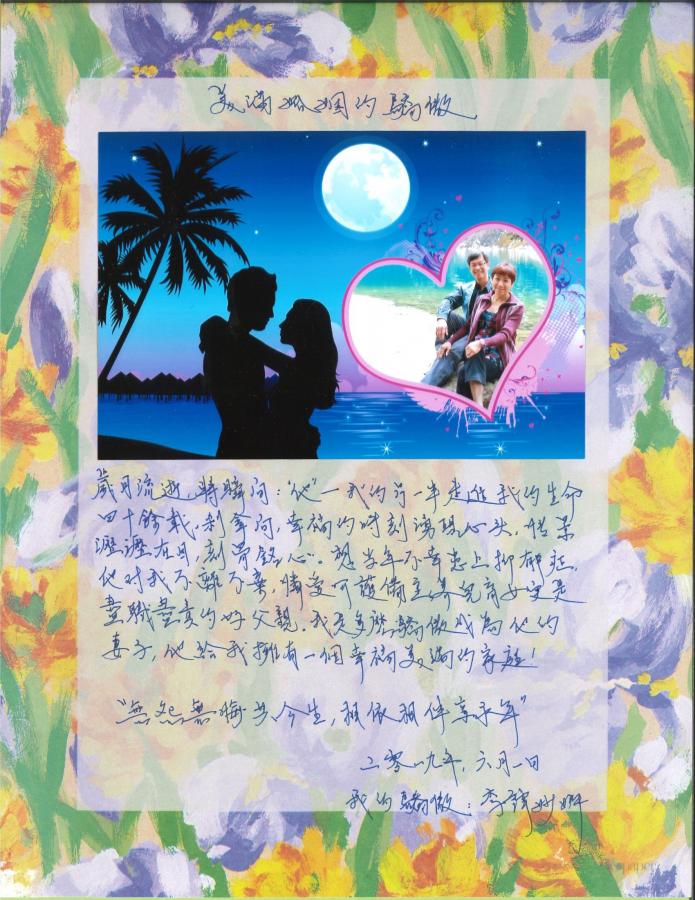 美滿婚姻的驕傲
歲月流逝,轉瞬間:"他"一我的另一半走進我的生命
四十餘載,剎牽間,幸福的時刻湧現心头,情景
歷歷在目,刻骨銘心。想当年不幸患上抑郁症,
他对我不離不棄,憐愛呵護備至,養兒育女更是
盡職盡責的好父親。我是多麼驕傲成為他的
妻子,他給我擁有一個幸福美滿的家庭!
"無怨無悔共今生,相依相伴享永年"
二零一九年,六月一日
我的驕傲:李
paper